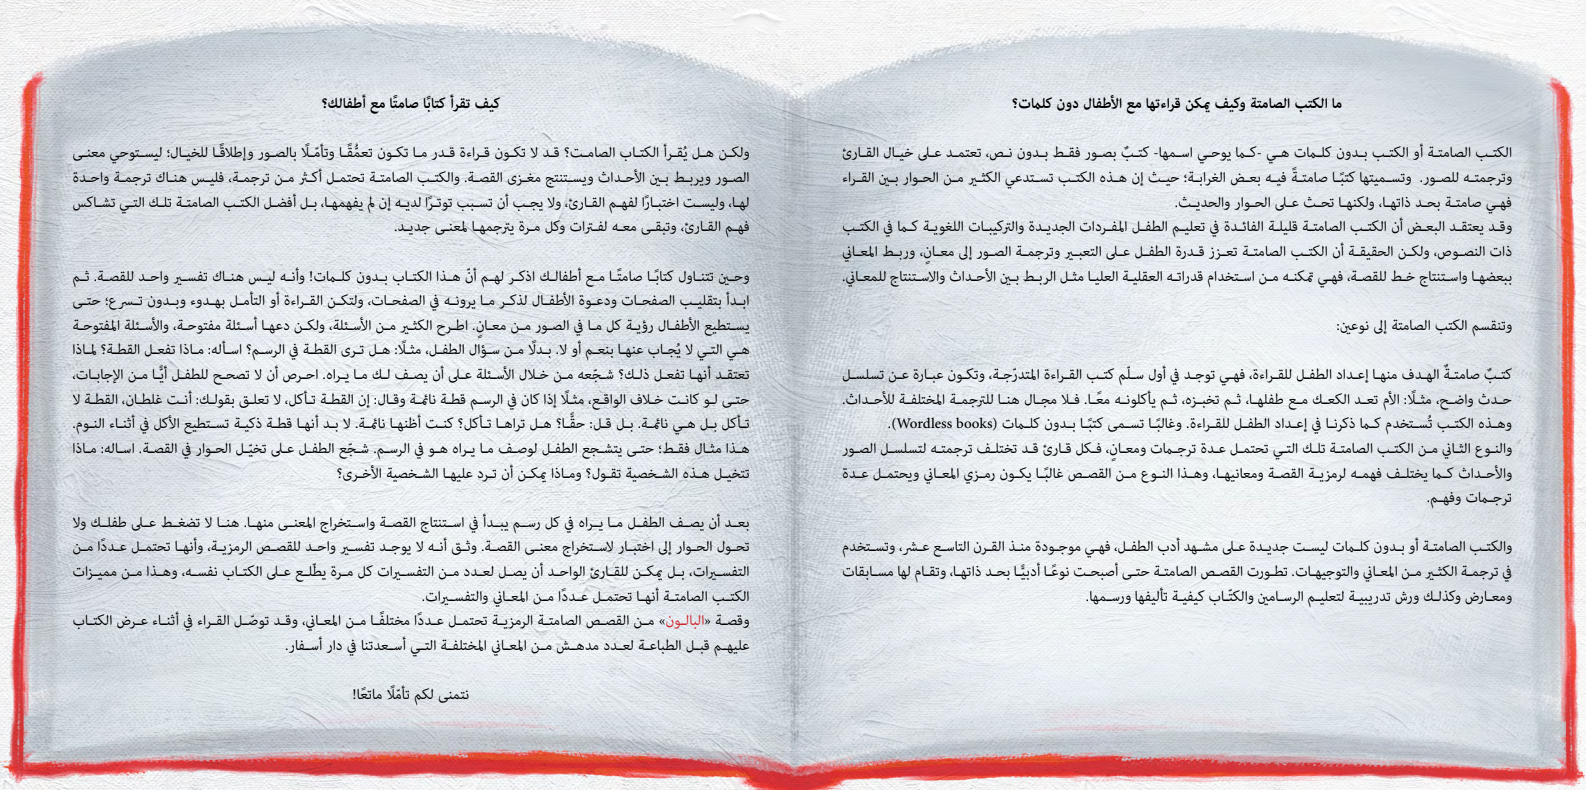 ما الكتب الصامتة وكيف يمكن قراءتها مع الأطفال دون كلمات؟
الكتب الصامتة أو الكتب بدون كلمات هي -كما يوحي اسمها- كتبٌ بصور فقط بدون نص، تعتمد على خيال القارئ
وترجمته للصور. وتسميتها كتبًا صامتةً فيه بعض الغرابة؛ حيث إن هذه الكتب تستدعي الكثير من الحوار بين القراء
فهي صامتة بحد ذاتها، ولكنها تحث على الحوار والحديث.
وقد يعتقد البعض أن الكتب الصامتة قليلة الفائدة في تعليم الطفل المفردات الجديدة والتركيبات اللغوية كما في الكتب
ذات النصوص، ولكن الحقيقة أن الكتب الصامتة تعزز قدرة الطفل على التعبير وترجمة الصور إلى معانٍ، وربط المعاني
ببعضها واستنتاج خط للقصة، فهي تمكنه من استخدام قدراته العقلية العليا مثل الربط بين الأحداث والاستنتاج للمعاني.
وتنقسم الكتب الصامتة إلى نوعين:
كتبٌ صامتةٌ الهدف منها إعداد الطفل للقراءة، فهي توجد في أول سلّم كتب القراءة المتدرّجة، وتكون عبارة عن تسلسل
حدث واضح، مثلًا: الأم تعد الكعك مع طفلها، ثم تخبزه، ثم يأكلونه معًا. فلا مجال هنا للترجمة المختلفة للأحداث.
وهذه الكتب تُستخدم كما ذكرنا في إعداد الطفل للقراءة. وغالبًا تسمى كتبًا بدون كلمات (Wordless books).
والنوع الثاني من الكتب الصامتة تلك التي تحتمل عدة ترجمات ومعانٍ، فكل قارئ قد تختلف ترجمته لتسلسل الصور
والأحداث كما يختلف فهمه لرمزية القصة ومعانيها، وهذا النوع من القصص غالبًا يكون رمزي المعاني ويحتمل عدة
ترجمات وفهم.
والكتب الصامتة أو بدون كلمات ليست جديدة على مشهد أدب الطفل، فهي موجودة منذ القرن التاسع عشر، وتستخدم
في ترجمة الكثير من المعاني والتوجيهات. تطورت القصص الصامتة حتى أصبحت نوعًا أدبيًّا بحد ذاتها، وتقام لها مسابقات
ومعارض وكذلك ورش تدريبية لتعليم الرسامين والكتّاب كيفية تأليفها ورسمها.
كيف تقرأ كتابًا صامتًا مع أطفالك؟
ولكن هل يُقرأ الكتاب الصامت؟ قد لا تكون قراءة قدر ما تكون تعمُّقًا وتأمّلًا بالصور وإطلاقًا للخيال؛ ليستوحي معنى
الصور ويربط بين الأحداث ويستنتج مغزى القصة. والكتب الصامتة تحتمل أكثر من ترجمة، فليس هناك ترجمة واحدة
لها، وليست اختبارًا لفهم القارئ، ولا يجب أن تسبب توترًا لديه إن لم يفهمها، بل أفضل الكتب الصامتة تلك التي تشاكس
فهم القارئ، وتبقى معه لفترات وكل مرة يترجمها لمعنى جديد.
وحين تتناول كتابًا صامتًا مع أطفالك اذكر لهم أنّ هذا الكتاب بدون كلمات! وأنه ليس هناك تفسير واحد للقصة. ثم
ابدأ بتقليب الصفحات ودعوة الأطفال لذكر ما يرونه في الصفحات، ولتكن القراءة أو التأمل بهدوء وبدون تسرع؛ حتى
يستطيع الأطفال رؤية كل ما في الصور من معانٍ. اطرح الكثير من الأسئلة، ولكن دعها أسئلة مفتوحة، والأسئلة المفتوحة
هي التي لا يُجاب عنها بنعم أو لا. بدلًا من سؤال الطفل، مثلًا: هل ترى القطة في الرسم؟ اسأله: ماذا تفعل القطة؟ لماذا
تعتقد أنها تفعل ذلك؟ شجّعه من خلال الأسئلة على أن يصف لك ما يراه. احرص أن لا تصحح للطفل أيًّا من الإجابات،
حتى لو كانت خلاف الواقع، مثلًا إذا كان في الرسم قطة نائمة وقال: إن القطة تأكل، لا تعلق بقولك: أنت غلطان، القطة لا
تأكل بل هي نائمة. بل قل: حقًّا؟ هل تراها تأكل؟ كنت أظنها نائمة. لا بد أنها قطة ذكية تستطيع الأكل في أثناء النوم.
هذا مثال فقط؛ حتى يتشجع الطفل لوصف ما يراه هو في الرسم. شجّع الطفل على تخيّل الحوار في القصة. اساله: ماذا
تتخيل هذه الشخصية تقول؟ وماذا يمكن أن ترد عليها الشخصية الأخرى؟
بعد أن يصف الطفل ما يراه في كل رسم يبدأ في استنتاج القصة واستخراج المعنى منها. هنا لا تضغط على طفلك ولا
تحول الحوار إلى اختبار لاستخراج معنى القصة. وثق أنه لا يوجد تفسير واحد للقصص الرمزية، وأنها تحتمل عددًا من
التفسيرات، بل يمكن للقارئ الواحد أن يصل لعدد من التفسيرات كل مرة يطّلع على الكتاب نفسه، وهذا من مميزات
الكتب الصامتة أنها تحتمل عددًا من المعاني والتفسيرات.
وقصة «البالون» من القصص الصامتة الرمزية تحتمل عددًا مختلفًا من المعاني، وقد توصّل القراء في أثناء عرض الكتاب
عليهم قبل الطباعة لعدد مدهش من المعاني المختلفة التي أسعدتنا في دار أسفار.
نتمنى لكم تأمّلًا ماتعًا!